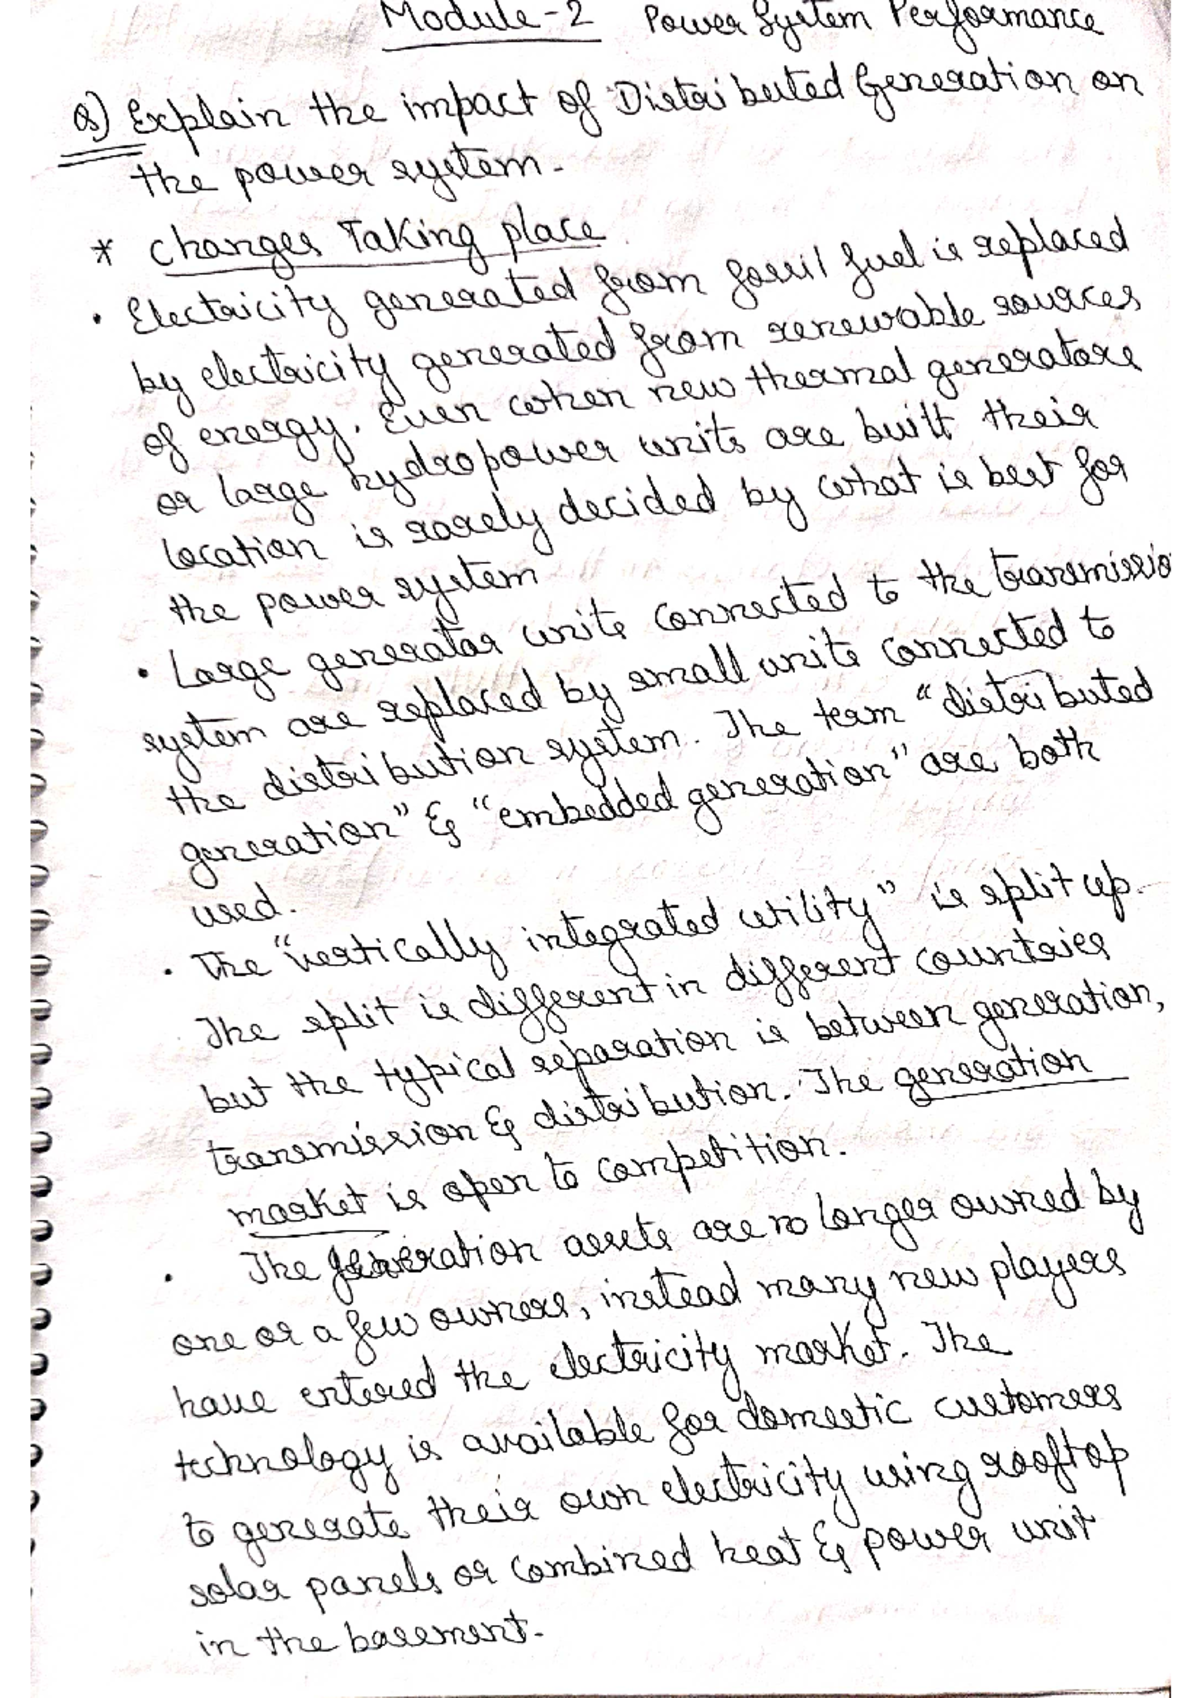 Module-2 Power System Performance
Q) Explain the impact of Distributed Generation on
the power system.
* Changes Taking place
• Electricity generated from fossil fuel is replaced
by electricity generated from renewable sources
of energy. Even when new thermal generators
or large hydropower units are built their
location is rarely decided by what is best for
the power system
• Large generator units connected to the transmissio
system are replaced by small units connected to
the distribution system. The term "distributed
generation" & "embedded generation" are both
used.
• The "vertically integrated utility" is split up.
The split is different in different countries
but the typical separation is between generation,
transmission & distribution. The generation
market is open to competition.
• The generation assets are no longer owned by
one or a few owners, instead many new players
have entered the electricity market. The
technology is available for domestic customers
to generate their own electricity using rooftop
solar panels or combined heat & power unit
in the basement.